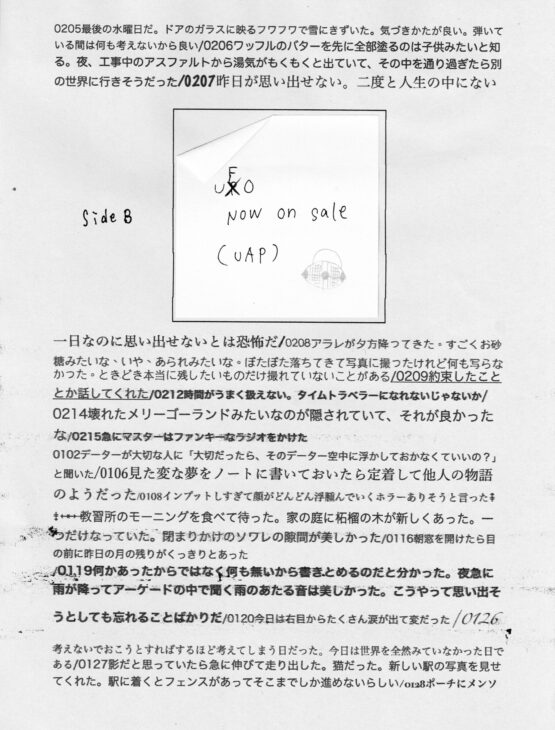 0205最後の水曜日だ。ドアのガラスに映るフワフワで雪にきずいた。気づきかたが良い。弾いて
いる間は何も考えないから良い/0206ワッフルのバターを先に全部塗るのは子供みたいと知
る。夜、工事中のアスファルトから湯気がもくもくと出ていて、その中を通り過ぎたら別
の世界に行きそうだった/0207昨日が思い出せない。二度と人生の中にない
Side B
UFO
Now on sale
(UAP)
一日なのに思い出せないとは恐怖だ/0208アラレが夕方降ってきた。すごくお砂
糖みたいな、いや、あられみたいな。ぼたぼた落ちてきて写真に撮ったけれど何も写らな
かった。ときどき本当に残したいものだけ撮れていないことがある/0209約束したこと
とか話してくれた/0212時間がうまく扱えない。タイムトラベラーになれないじゃないか/
0214壊れたメリーゴーランドみたいなのが隠されていて、それが良かった
な/0215急にマスターはファンキーなラジオをかけた
0102データーが大切な人に「大切だったら、そのデータ空中に浮かしておかなくていいの?」
と聞いた/0106見た変な夢をノートに書いておいたら定着して他人の物語
のようだった/0108インプットしすぎて顔がどんどん浮腫んでいくホラーありそうと言った
教習所のモーニングを食べて待った。家の庭に柘榴の木が新しくあった。一
つだけなっていた。閉まりかけのソワレの隙間が美しかった/0116朝窓を開けたら目
の前に昨日の月の残りがくっきりとあった
/0119何かあったからではなく何も無いから書きとめるのだと分かった。夜急に
雨が降ってアーケードの中で聞く雨のあたる音は美しかった。こうやって思い出そ
うとしても忘れることばかりだ/0120今日は右目からたくさん涙が出て変だった/0126
考えないでおこうとすればするほど考えてしまう日だった。今日は世界を全然みていなかった日で
ある/0127影だと思っていたら急に伸びて走り出した。猫だった。新しい駅の写真を見せ
てくれた。駅に着くとフェンスがあってそこまでしか進めないらしい/0128ポーチにメンソ